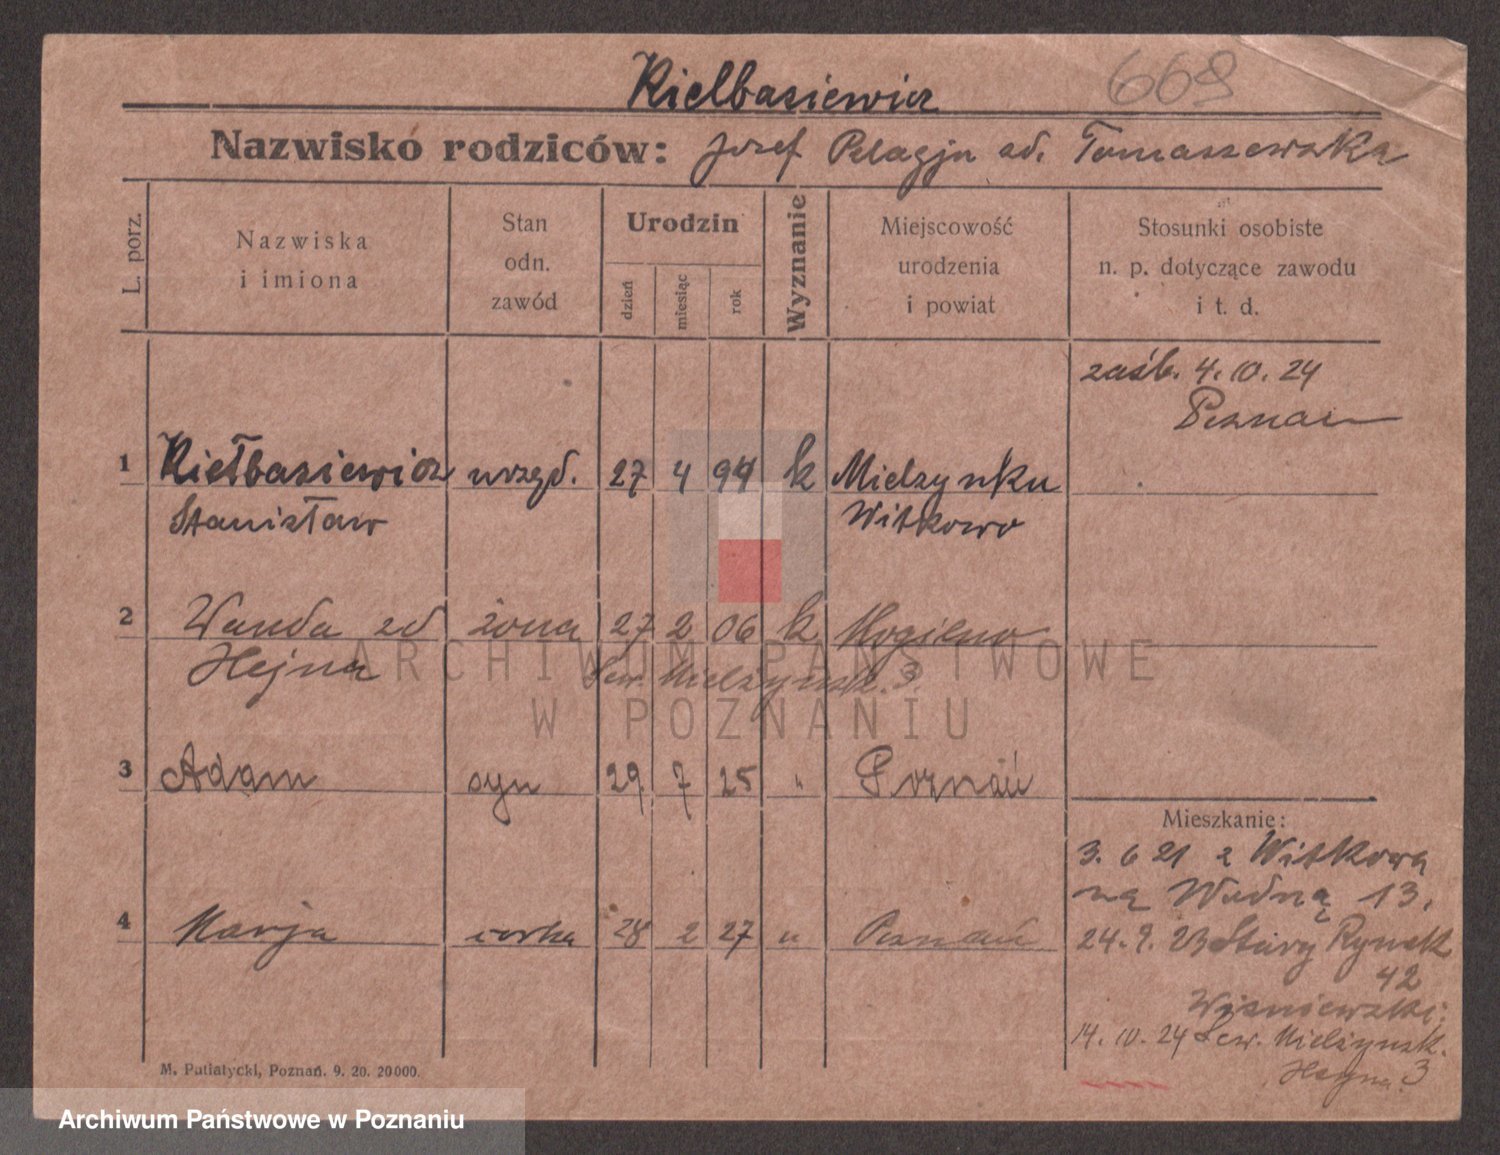 Kielbasiewicz 668
Nazwisko rodziców: Josef Pelagja od. Tomaszewska
L. porz.
Nazwiska
i imiona
Stan
odn.
zawód
Urodzin
dzień
miesiąc
rok
Wyznanie
Miejscowość
urodzenia
i powiat
Stosunki osobiste
n. p. dotyczące zawodu
i t. d.
zaśb. 4.10.24
Poznań
1 Kiełbasiewicz urzęd. 27 4 94 k Mielzynku
Stanisław Witkowo
2 Wanda zd żona 27 2 06 k Mogilno
Hejna Sew. Mielżynsk. 3.
ARCHIWUM PAŃSTWOWE
W POZNANIU
3 Adam syn 29 7 25 " Poznań
Mieszkanie:
3. 6 21 z Witkowa
na Wodną 13.
4 Marja corka 28 2 27 " Poznań
24. 9. 23 Stary Rynek
42
Wisniewski:
14. 10. 24 Sew. Mielżynsk.
Hejna 3
M. Putiatycki, Poznań. 9. 20. 20000.
Archiwum Państwowe w Poznaniu